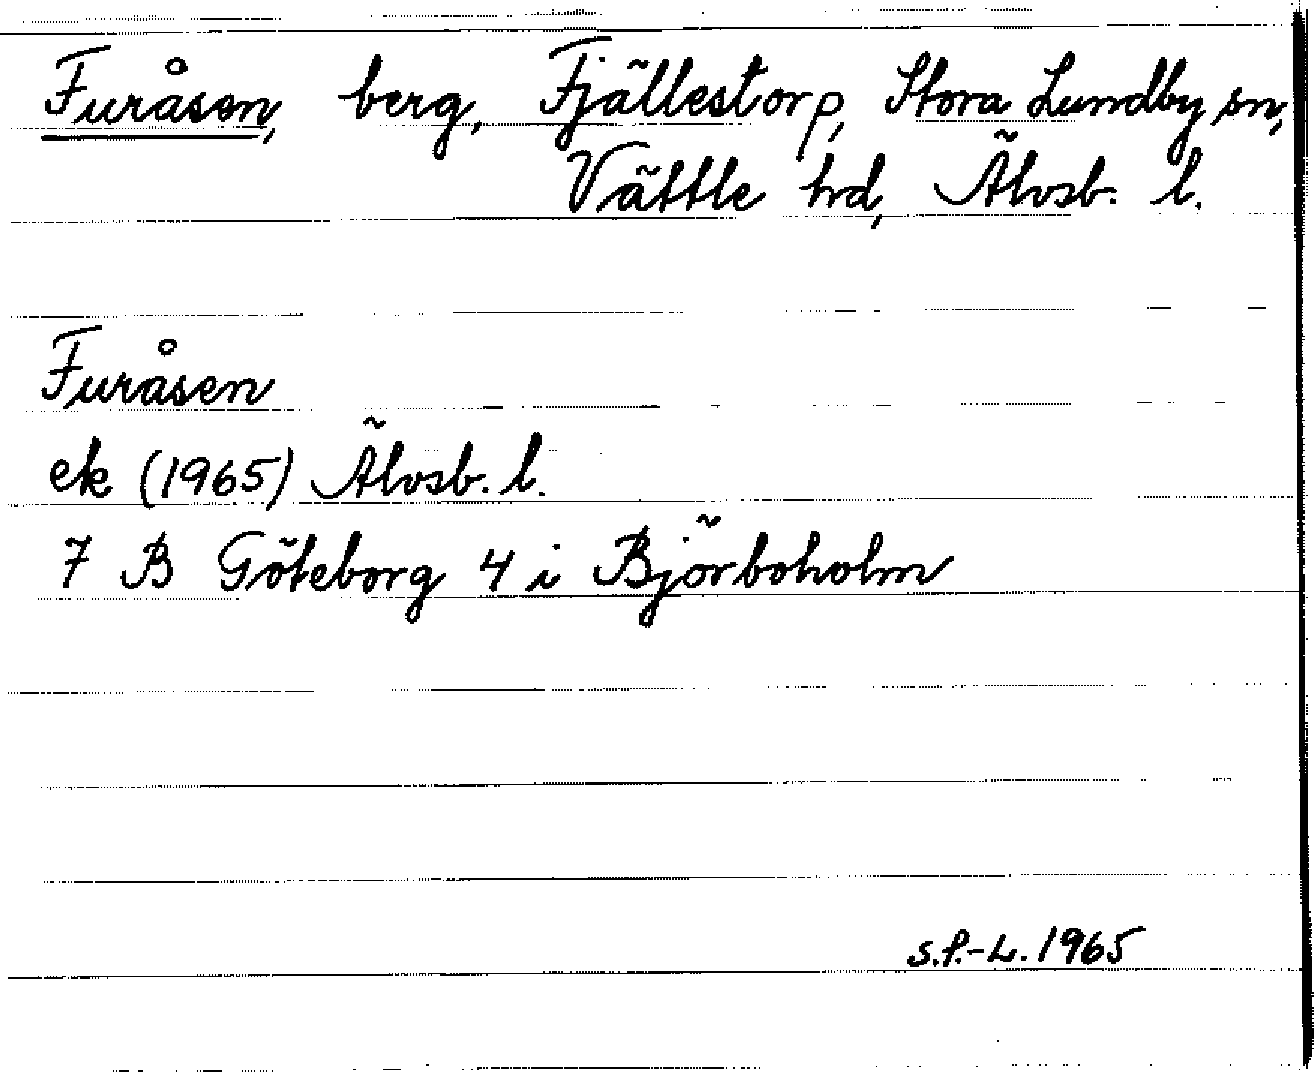 Furåsen, berg, Fjällestorp, Stora Lundby sn,
Vättle hd, Älvsb. l.
Furåsen
ek (1965) Älvsb. l.
7 B Göteborg 4 i Björboholm
S.P.-L. 1965